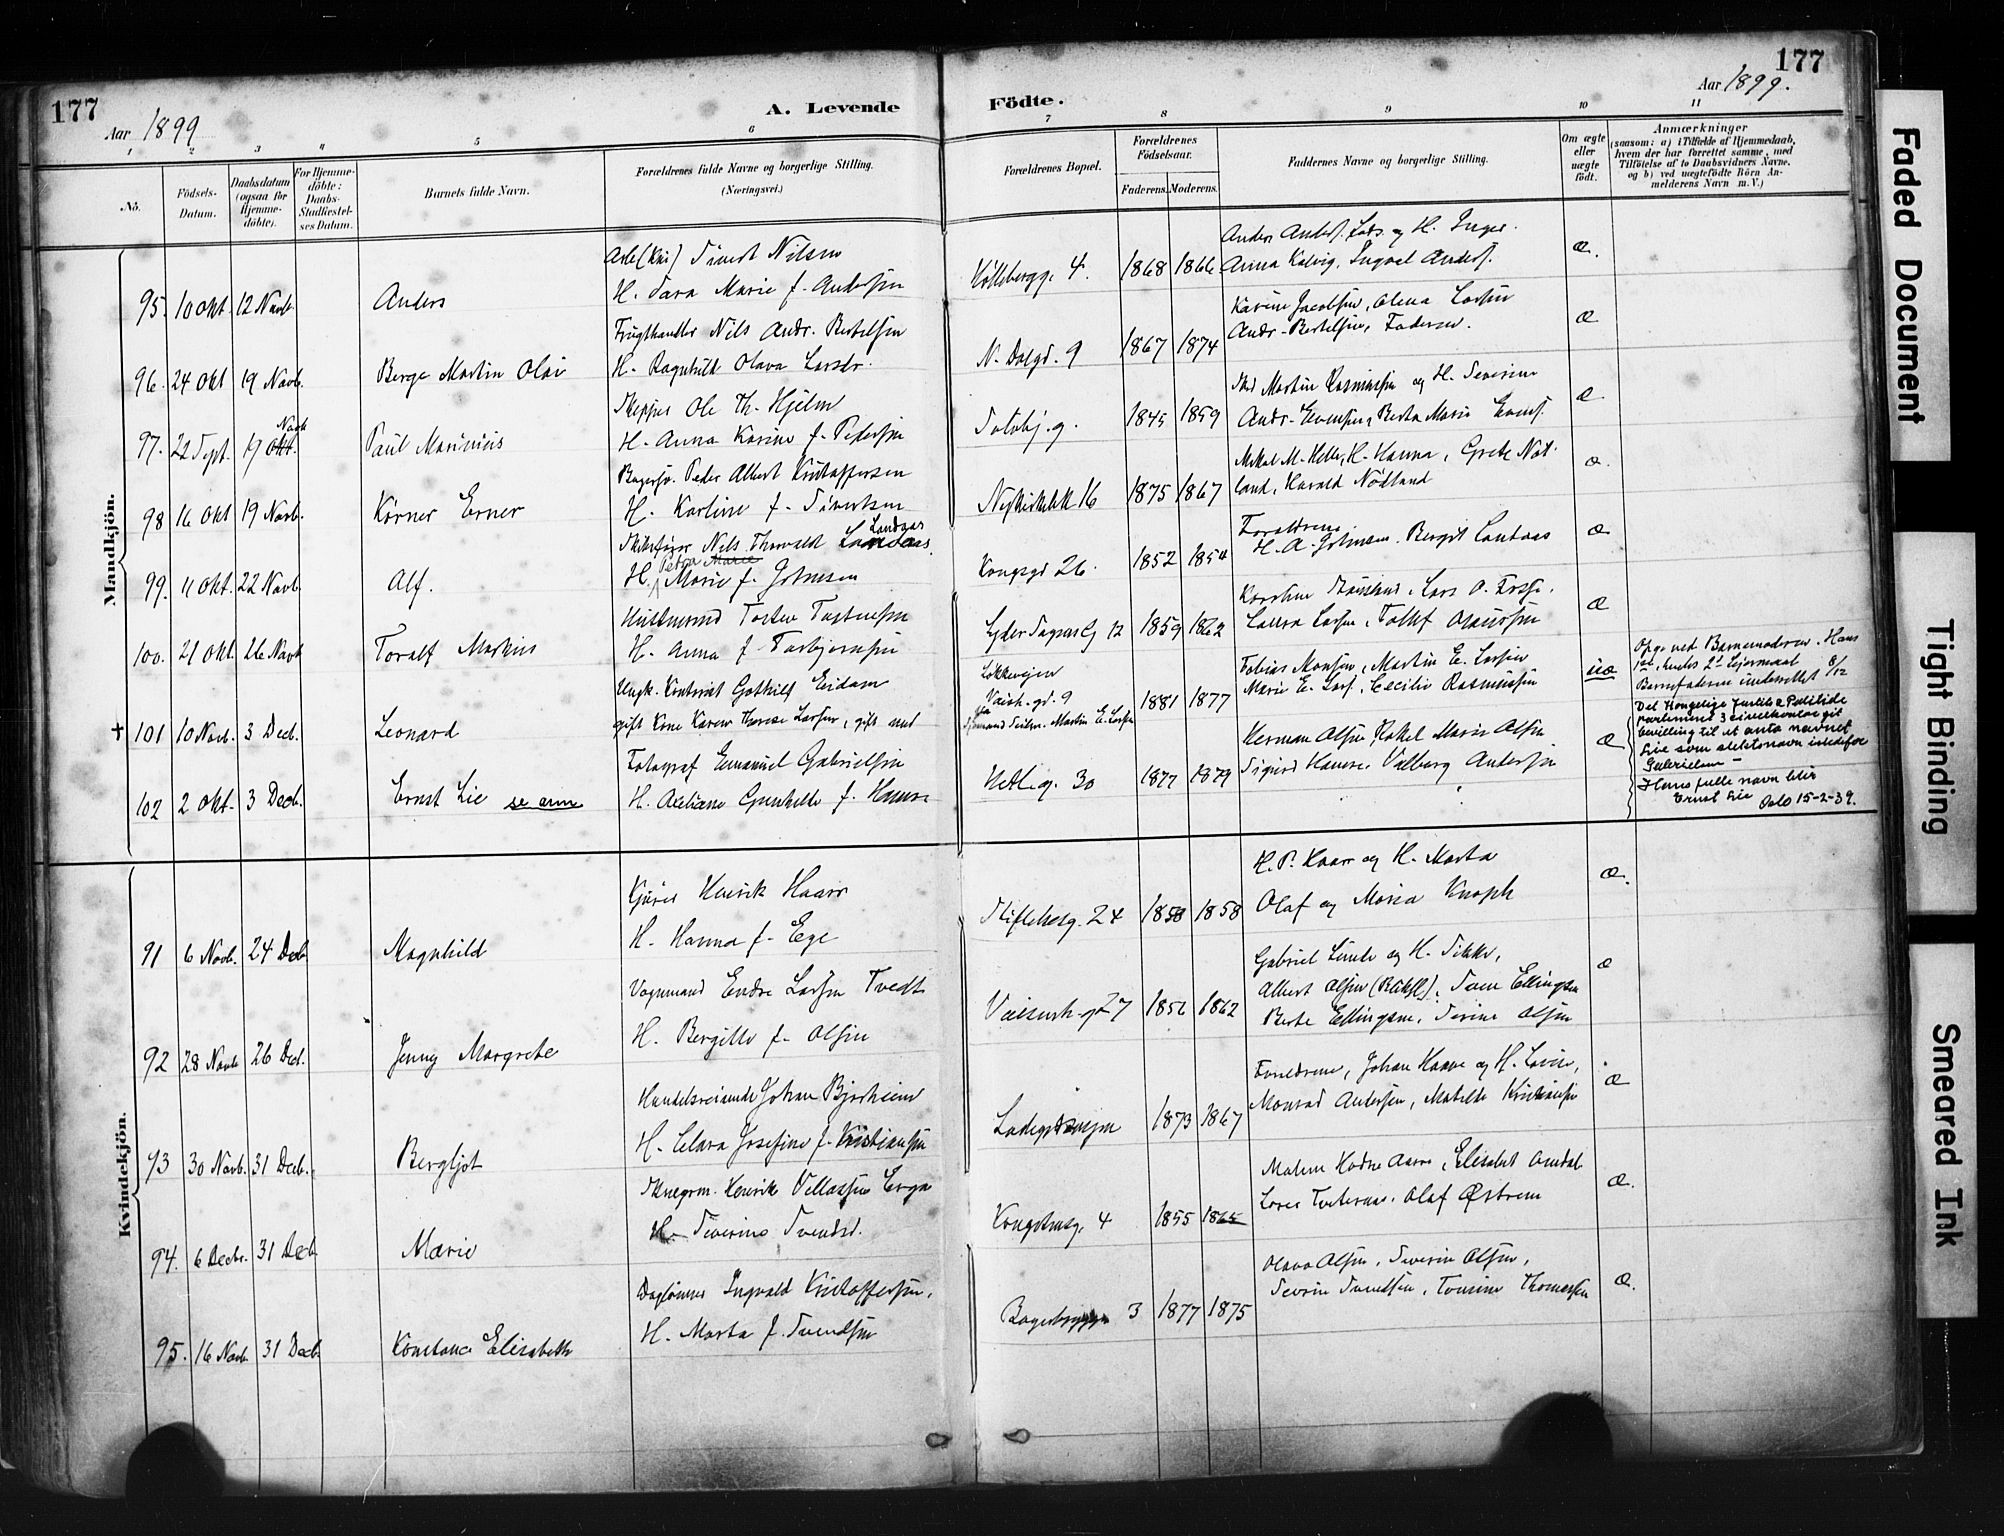 177
177
Aar 1899
A. Levende
Födte.
Aar 1899.
1 2 3 4 5 6 7 8 9 10 11
No.
Födsels-Datum.
Daabsdatum (ogsaa for Hjemme-döbte).
For Hjemme-döbte: Daabs-Stadfæstel-ses Datum.
Barnets fulde Navn.
Forældrenes fulde Navne og borgerlige Stilling.
(Næringsvei.)
Forældrenes Bopæl.
Forældrenes Födselsaar.
Faderens. Moderens.
Faddernes Navne og borgerlige Stilling.
Om ægte eller uægte födt.
Anmærkninger
(saasom: a) i Tilfælde af Hjemmedaab, hvem der har forrettet samme, med Tilföielse af to Daabsvidners Navne, og b) ved uægtefödte Börn Anmelderens Navn m. V.)
Mandkjön.
95. 10 Okt. 12 Novb. Anders
Sivert Nilsen
H. Sara Marie f. Andersen
4. 1868 1866
Anna Kalvig, Ingval Anders.
æ.
96. 24 Okt 19 Novb. Berge Martin Olai
Frugthandler Nils Andr. Bertelsen
H. Ragnhild Olava Larsdr.
N. Dalgd. 9 1867 1874
Karine Jacobsen, Olena Larsen
Andr. Bertelsen, Faderen.
æ
97. 22 Sept. 19 Okt. Novb Paul Marinius
Skipper Ole Th. Hjelm
H. Anna Karine f. Pedersen
1845 1859
Martin Rasmussen og H. Severine
Andr. Evensen, Berta Marie Evens.
æ
98 16 Okt 19 Novb. Körner Erner
Peder Albert Kristoffersen
H. Karline f. Sivertsen
Nykirkebk 16 1875 1867
H. Hanna, Grete Nøt-
land, Harald Nödland
æ.
99. 11 Okt. 22 Novb. Alf.
Nils Thorvald Landaas
H. Petra Marie f. Johnsen
Kongsgd 26. 1852 1854
Forældrene
H. A. Johnsen. Bergit Landaas
æ
100. 21 Okt. 26 Novb Toralf Markus
H. Anna f. Torbjørnsen
Eyder Sagens G 12 1859 1862
Lars O. Fosse,
Laura Larsen, Tollef
æ
† 101 10 Novb. 3 Decb. Leonard
Ungk. Kontorist Gothilf Eidam
gift Kone Karen Therese Larsen, gift med
Løkkeveien
Vaish. gd. 9
Martin E. Larsen
1881 1877
Tobias Monsen, Martin E. Larsen
Marie E. Lars. Cecilie Rasmussen
uæ
Opg. ved Barnemoderen. Hans
1st, hendes 2t Leiermaal
Barnefaderen underrettet 8/12
102 2 Okt. 3 Decb. Ernst Lie se anm
Fotograf Emanuel Gabrielsen
H. Axeliane Gunhilde f. Hansen
Hetl.g. 30 1877 1879
Herman Olsen, Rakel Marie Olsen
Sigurd Hansen, Valborg Andersen
æ
Det Kongelige Justis & Politide
partement 3 sivilkontor git
bevilling til at anta navnet
Lie som slektsnavn istedefor
Gabrielsen —
Hans fulle navn blir
Ernst Lie Oslo 15-2-39.
Kvindekjön.
91 6 Novb. 24 Decb Magnhild
Henrik Haarr
H. Hanna f. Ege
24 1858 1858
H. P. Haarr og H. Marta
Olaf og Maria Knoph
æ.
92 28 Novb 26 Decb. Jenny Margrete
Vognmand Endre Larsen Tvedt
H. Bergitte f. Olsen
Vaisenh.g 27 1856 1862
Gabriel Lunde og H. Sikke,
Albert Olsen, Ellingsen
Berte Ellingsen, Serine Olsen
æ
93 30 Novb. 31 Decb. Bergljot
Handelsreisende Johan Bjorheim
H. Clara Josefine f. Kristiansen
Ladegdsveien 1873 1867
Forældrene, Johan Haave og H. Lovise,
Monrad Andersen, Matilde Kristiansen
æ
94. 6 Decbr. 31 Decb Marie
Henrik Villassen Erga
H. Severine Svendsd.
Kongstensg. 4 1855 1865
Elisabet
Olaf Østrem
æ.
95. 16 Novb. 31 Decb. Konstance Elisabeth
Daglønner Ingvald Kristoffersen,
H. Marta f. Svendsen
Bagerbryggen 3 1877 1875
Olava Olsen, Severin Olsen,
Severin Svendsen, Tomine Thomassen
æ.
Faded Document
Tight Binding
Smeared Ink